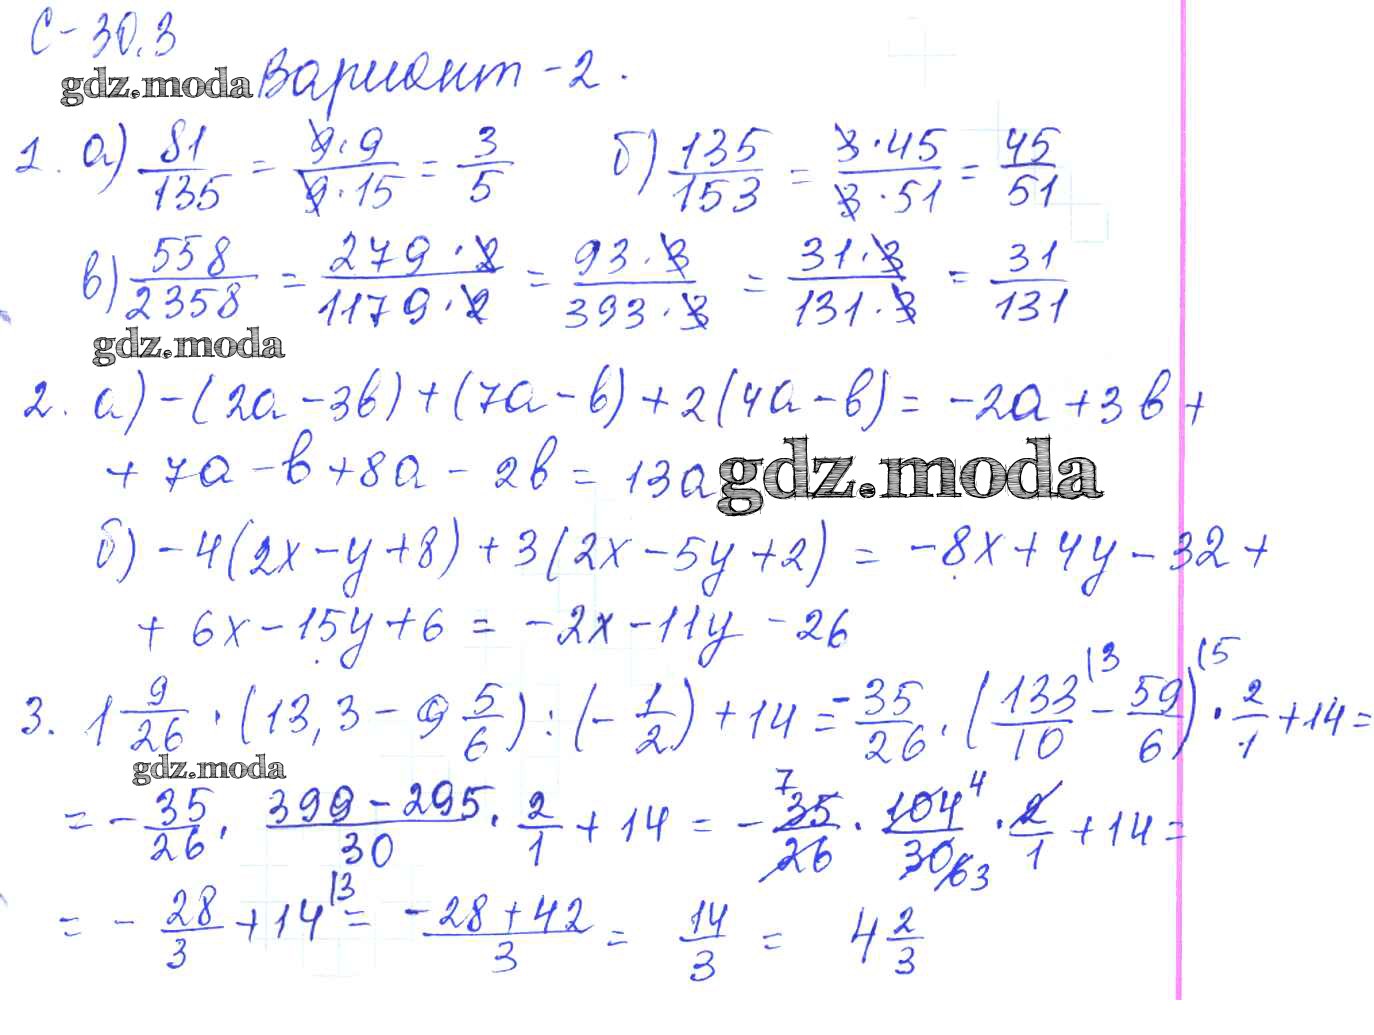 С-30.3
gdz.moda Вариант-2.
1. а) 81/135 = 9·9/9·15 = 3/5 б) 135/153 = 3·45/3·51 = 45/51
в) 558/2358 = 279·2/1179·2 = 93·3/393·3 = 31·3/131·3 = 31/131
gdz.moda
2. а) -(2a-3b)+(7a-b)+2(4a-b) = -2a+3b+
+7a-b+8a-2b = 13a gdz.moda
б) -4(2x-y+8)+3(2x-5y+2) = -8x+4y-32+
+6x-15y+6 = -2x-11y-26
3. 1 9/26 · (13,3 - 9 5/6) : (-1/2) + 14 = -35/26 · (133/10 (3 - 59/6) (5 · 2/1 + 14 =
gdz.moda
= -35/26 · 399-295/30 · 2/1 + 14 = - 7 35/26 · 104 4/30 6 3 · 2/1 + 14 =
= -28/3 + 14 (3 = -28+42/3 = 14/3 = 4 2/3